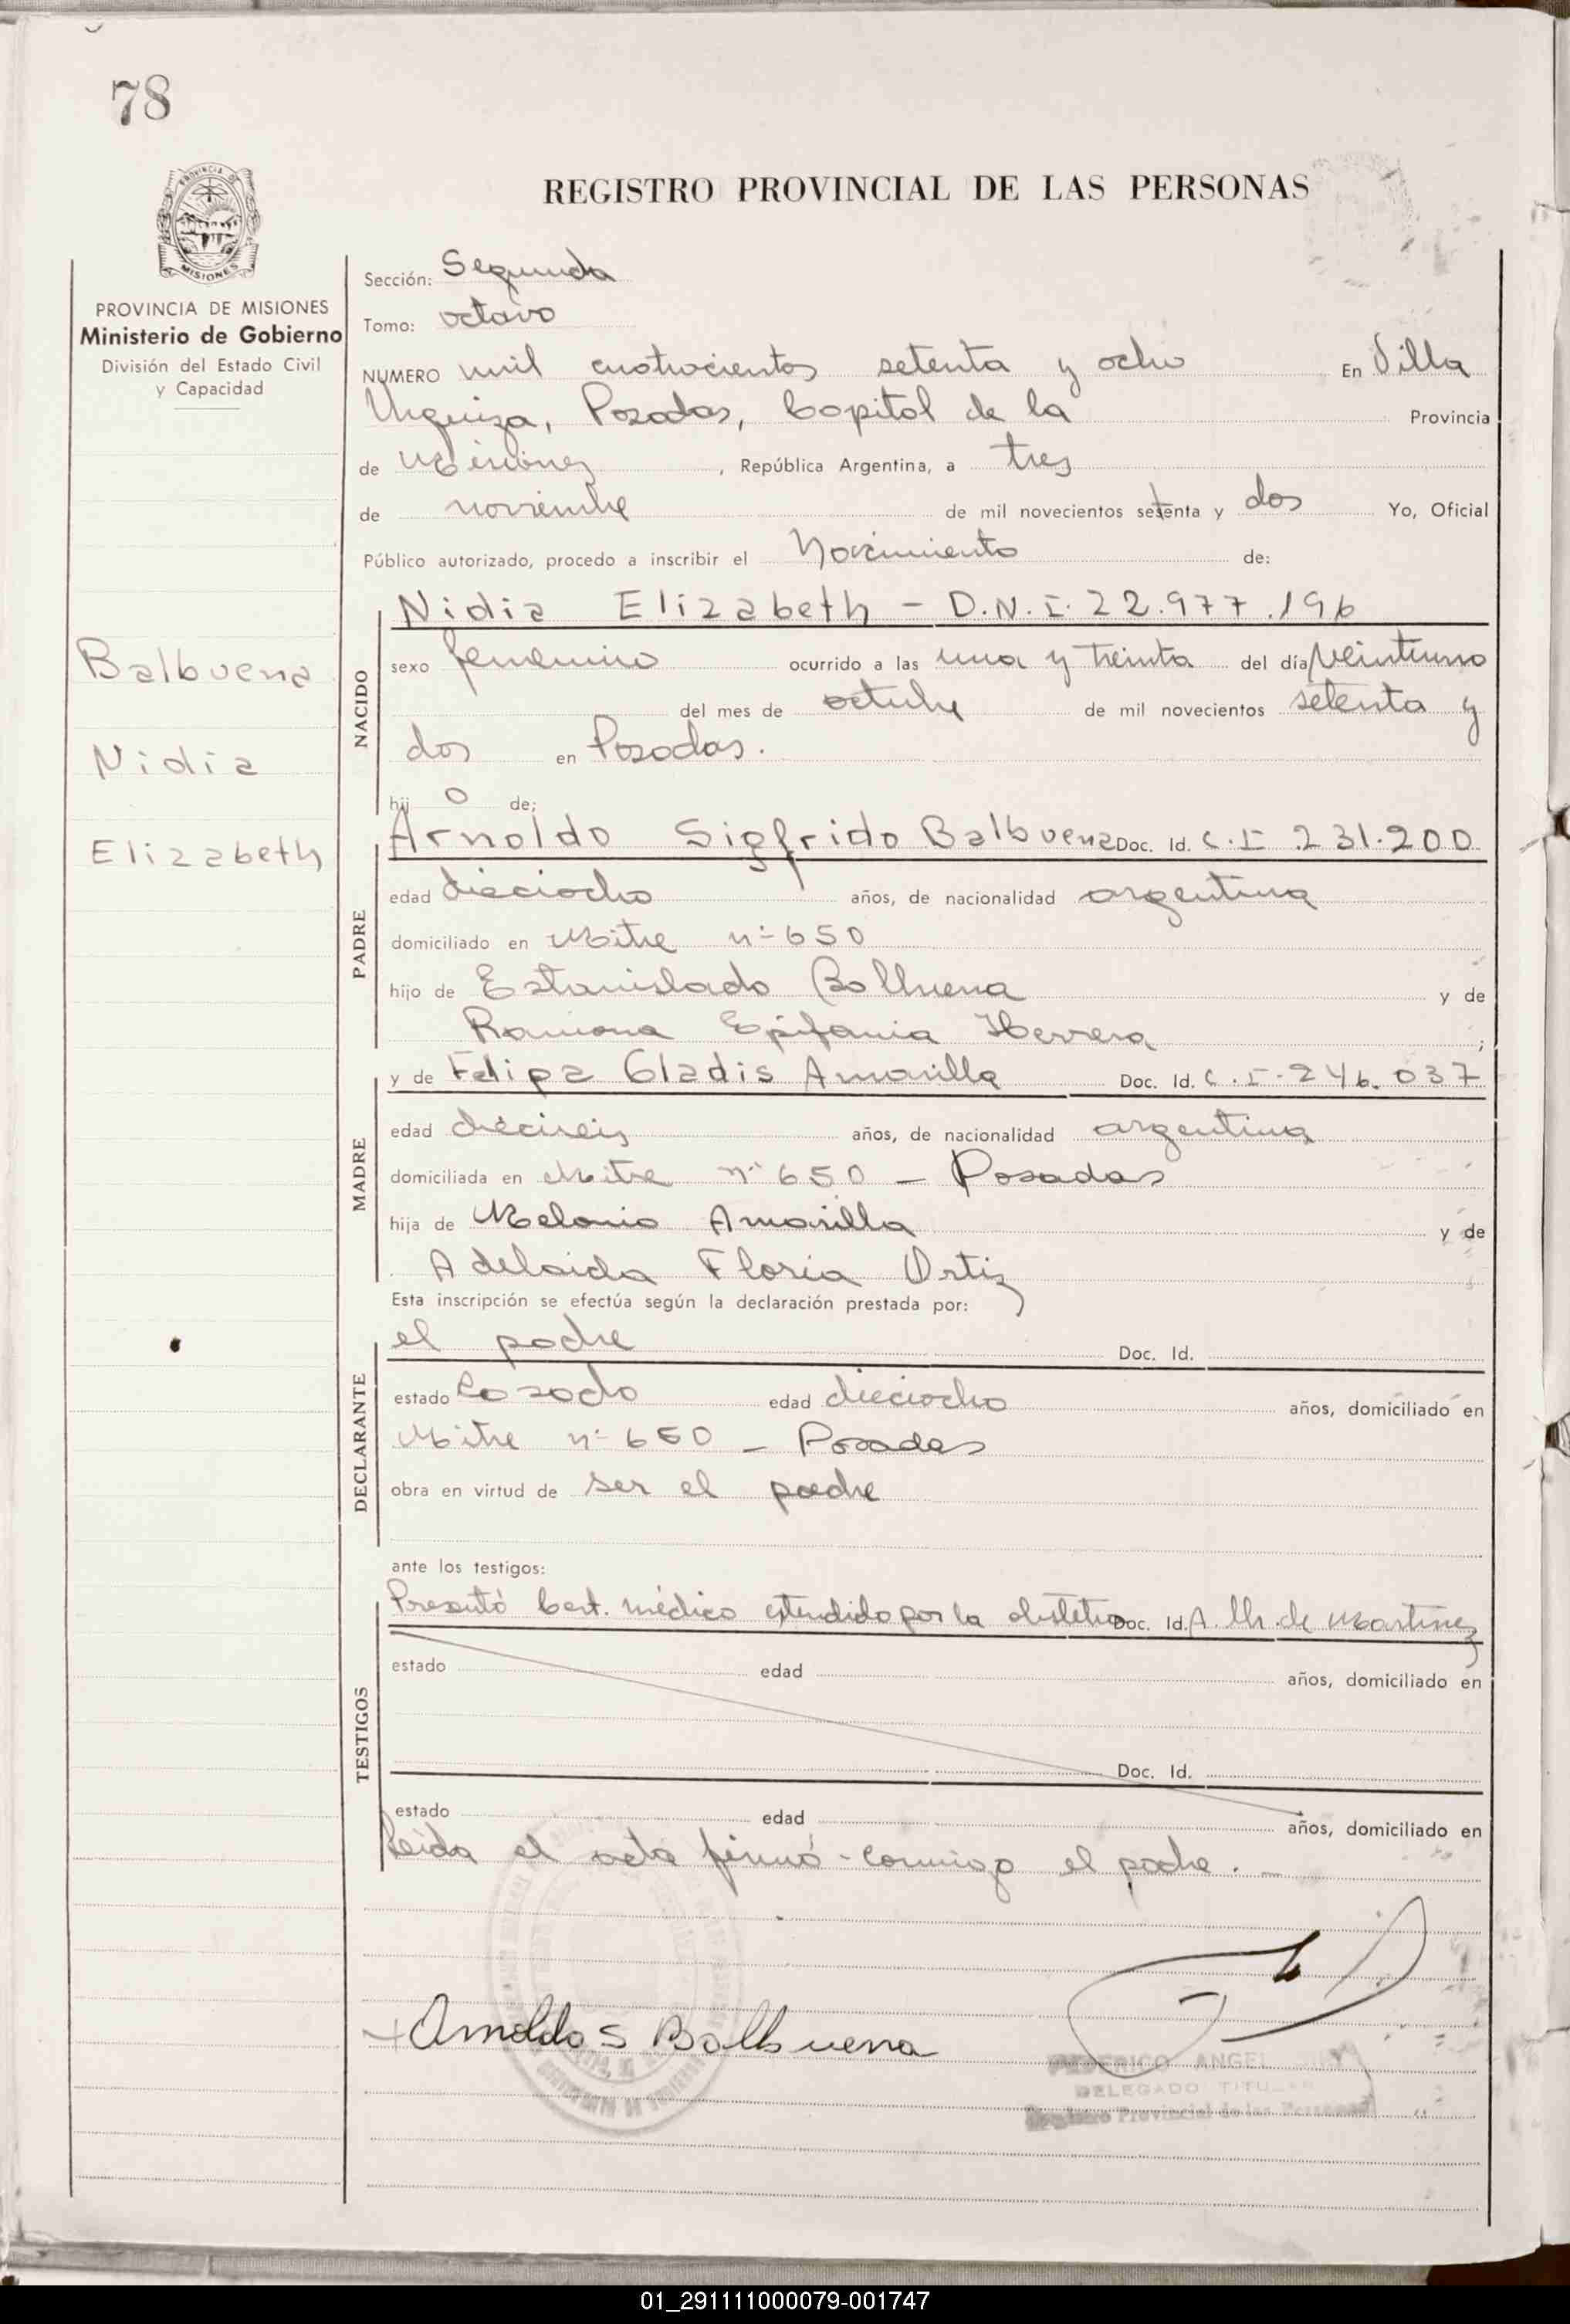 78
PROVINCIA DE MISIONES
MISIONES
PROVINCIA DE MISIONES
Ministerio de Gobierno
División del Estado Civil
y Capacidad
Balbuena
Nidia
Elizabeth
REGISTRO PROVINCIAL DE LAS PERSONAS
Sección: Segunda
Tomo: octavo
NUMERO mil cuatrocientos setenta y ocho En Villa
Urquiza, Posadas, Capital de la Provincia
de Misiones, República Argentina, a tres
de noviembre de mil novecientos setenta y dos Yo, Oficial
Público autorizado, procedo a inscribir el Nacimiento de:
NACIDO
Nidia Elizabeth - D.N.I. 22.977.196
sexo femenino ocurrido a las una y treinta del día veintiuno
del mes de octubre de mil novecientos setenta y
dos en Posadas.
hij o de:
PADRE
Arnoldo Sigfrido Balbuena Doc. Id. C.I 231.200
edad dieciocho años, de nacionalidad argentina
domiciliado en Mitre nº 650
hijo de Estanislado Balbuena y de
Ramona Epifania Herrera ;
MADRE
y de Felipa Gladis Amarilla Doc. Id. C.I. 246.037
edad dieciseis años, de nacionalidad argentina
domiciliada en Mitre nº 650 - Posadas
hija de Melanio Amarilla y de
Adelaida Floria Ortiz
Esta inscripción se efectúa según la declaración prestada por:
DECLARANTE
el padre Doc. Id.
estado casado edad dieciocho años, domiciliado en
Mitre nº 650 - Posadas
obra en virtud de ser el padre
ante los testigos:
TESTIGOS
Presentó Cert. médico extendido por la obstetra Doc. Id. A. de Martinez
estado edad años, domiciliado en
Doc. Id.
estado edad años, domiciliado en
Leida el acta firmó conmigo el padre. -
Arnoldo S Balbuena
FEDERICO ANGEL
DELEGADO TITULAR
Registro Provincial de las Personas
01_291111000079-001747